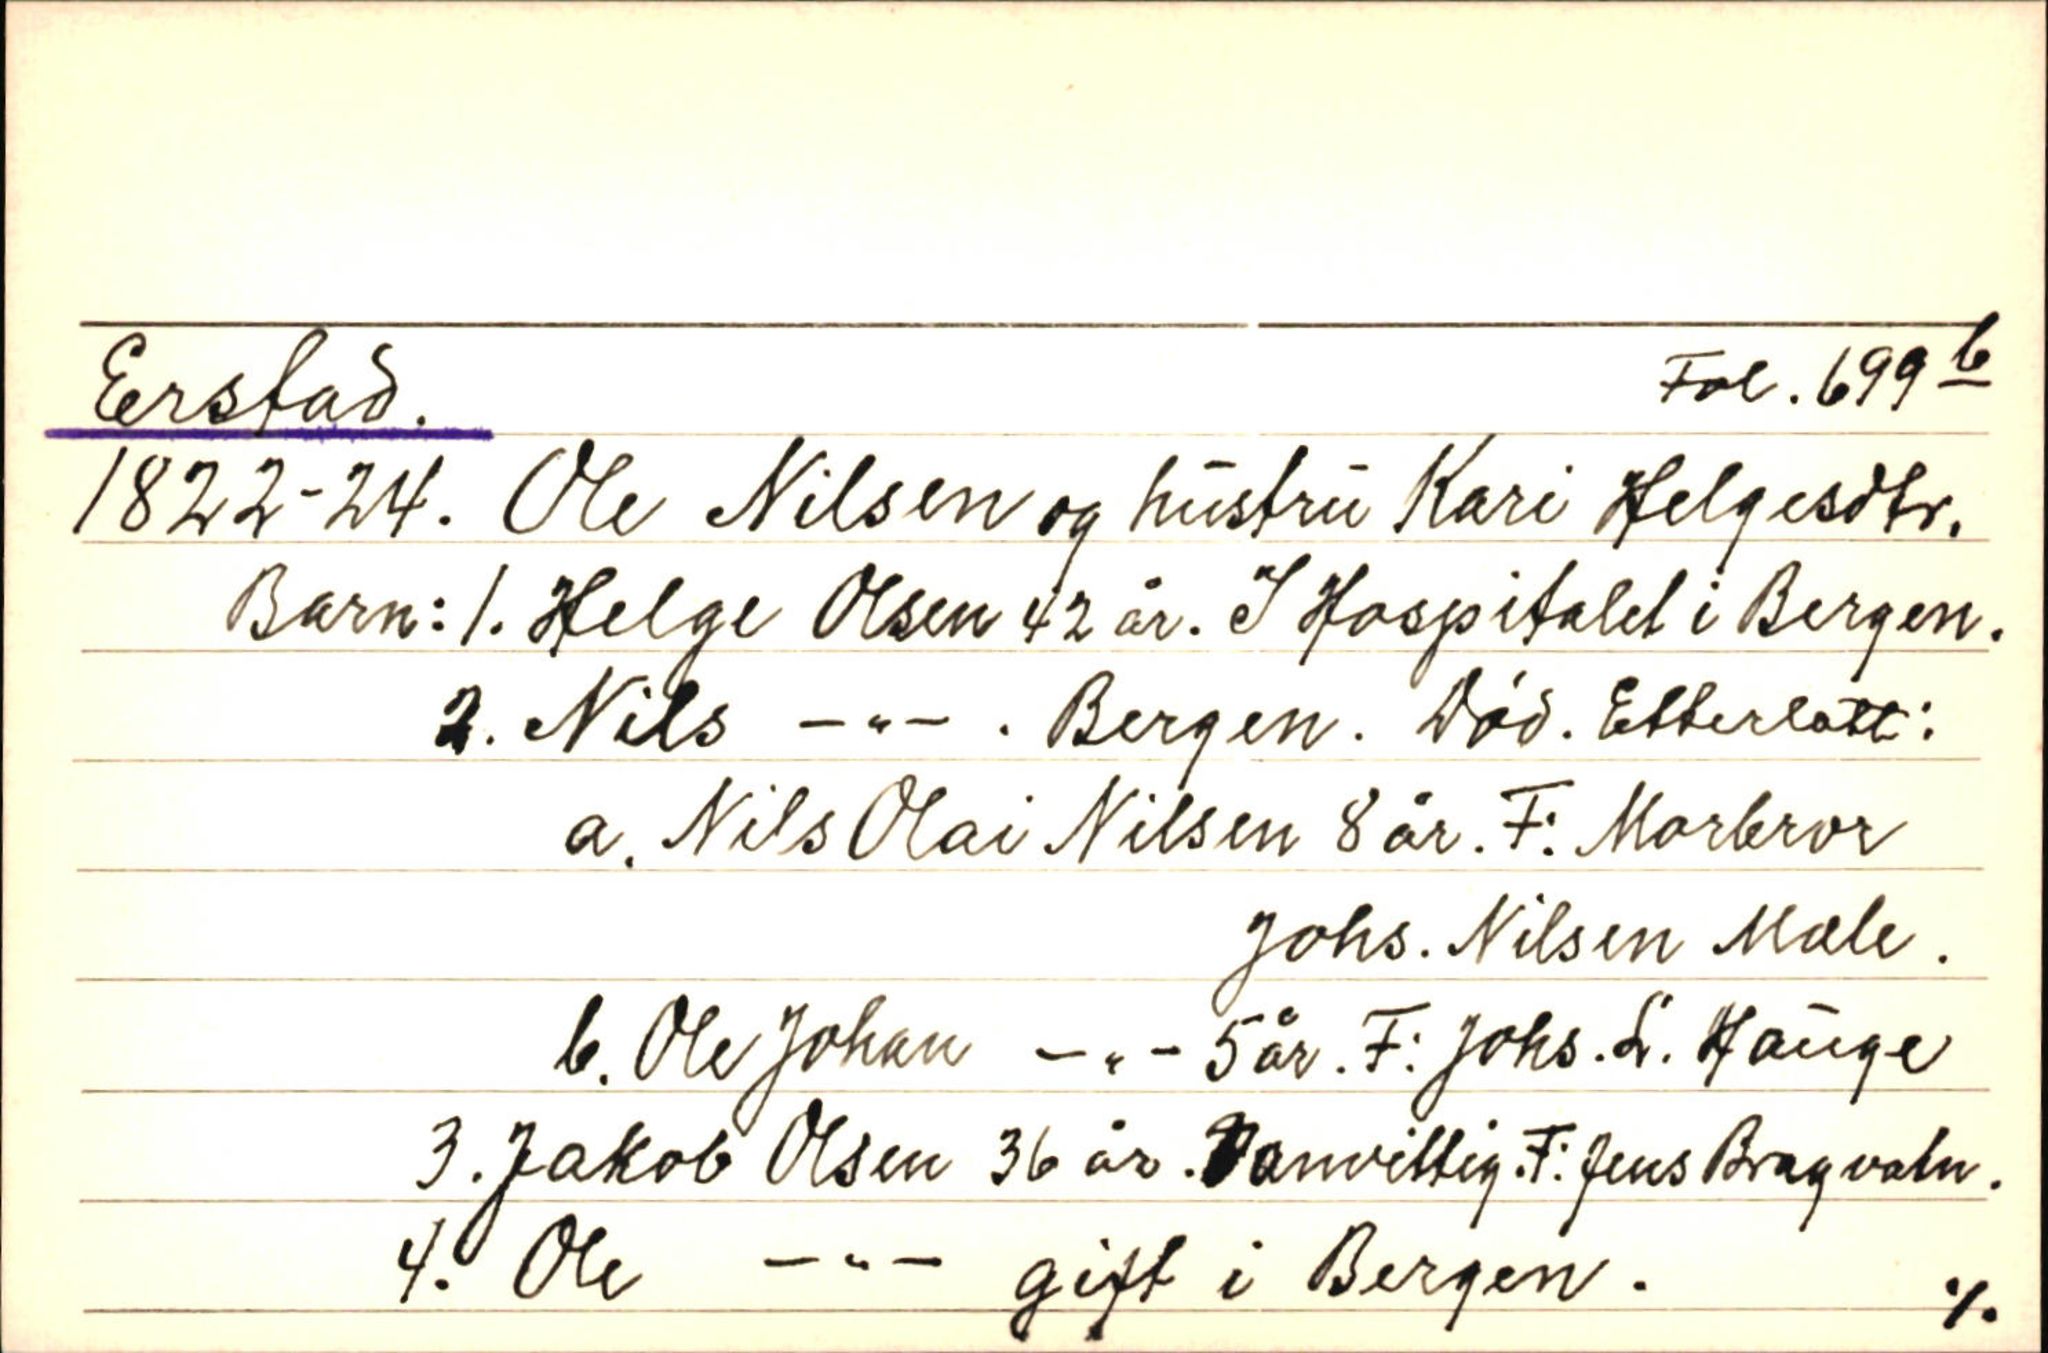 Erstad. Fol. 699 b
1822-24. Ole Nilsen og hustru Kari Helgesdtr.
Barn: 1. Helge Olsen 42 år. I Hospitalet i Bergen.
2. Nils -"- . Bergen. Død. Etterlatt:
a. Nils Olai Nilsen 8 år. F: Morbror
Johs. Nilsen Mæle.
b. Ole Johan -"- 5 år. F: Johs. L. Hauge
3. Jakob Olsen 36 år. Vanvittig. F: Jens Bragvatn.
4. Ole -"- gift i Bergen. ./.